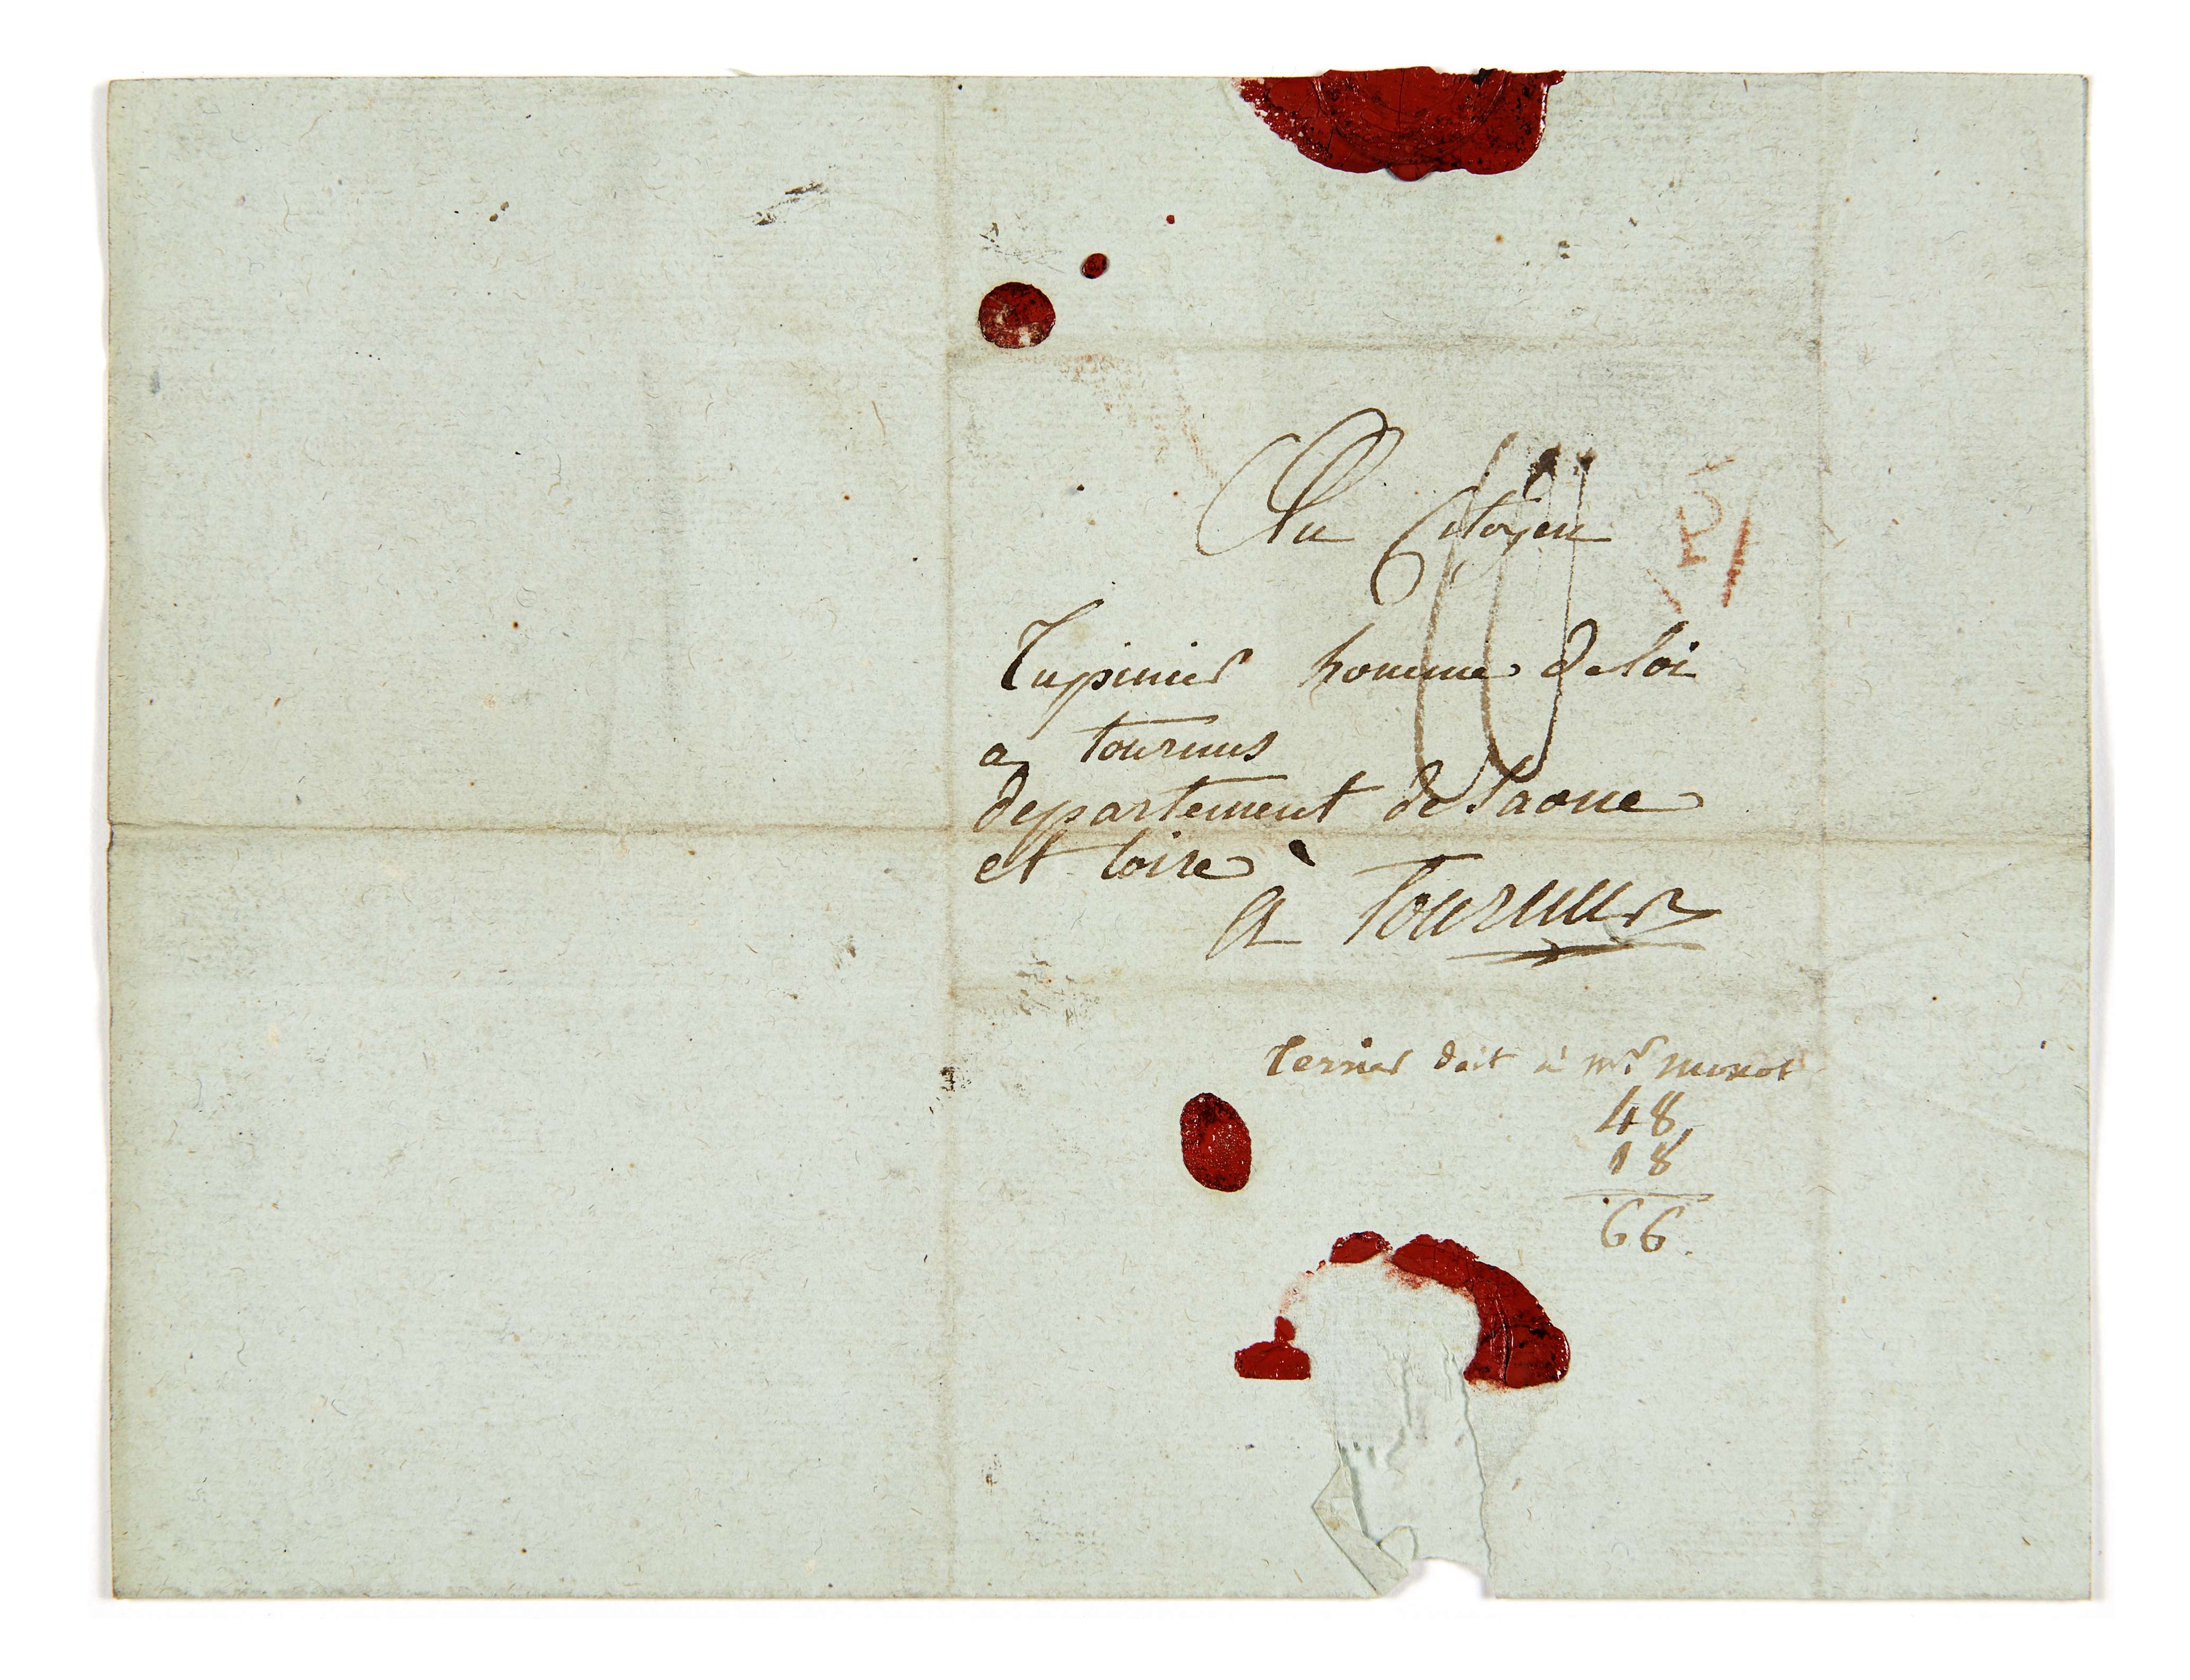 Au Citoyen
Tupinier homme de loi
a tournus
departement de Saone
et loire
A Tournus
terrier doit à Mr. Monot
48
18
66.